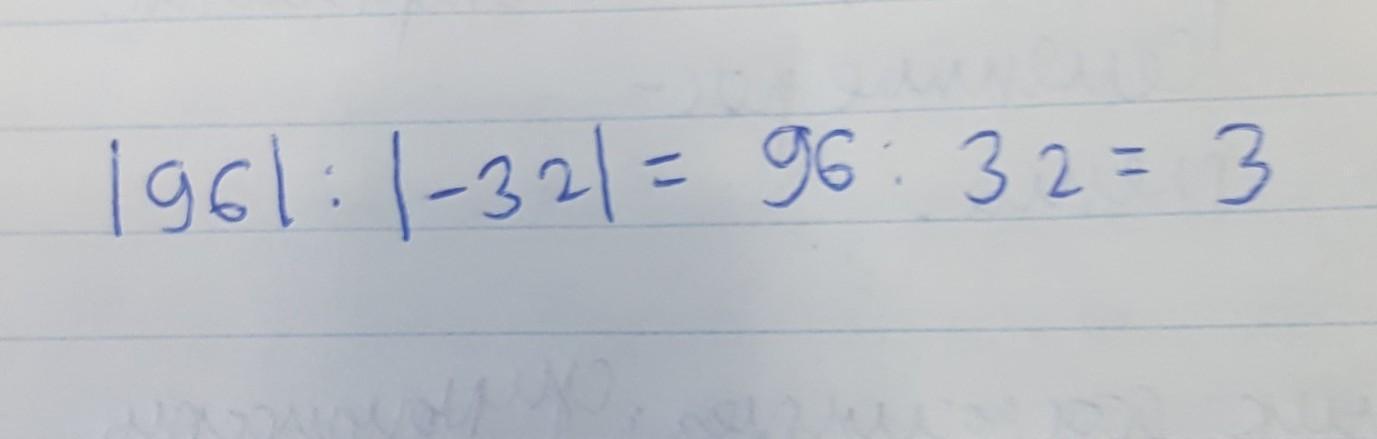 |96| : |-32| = 96 : 32 = 3